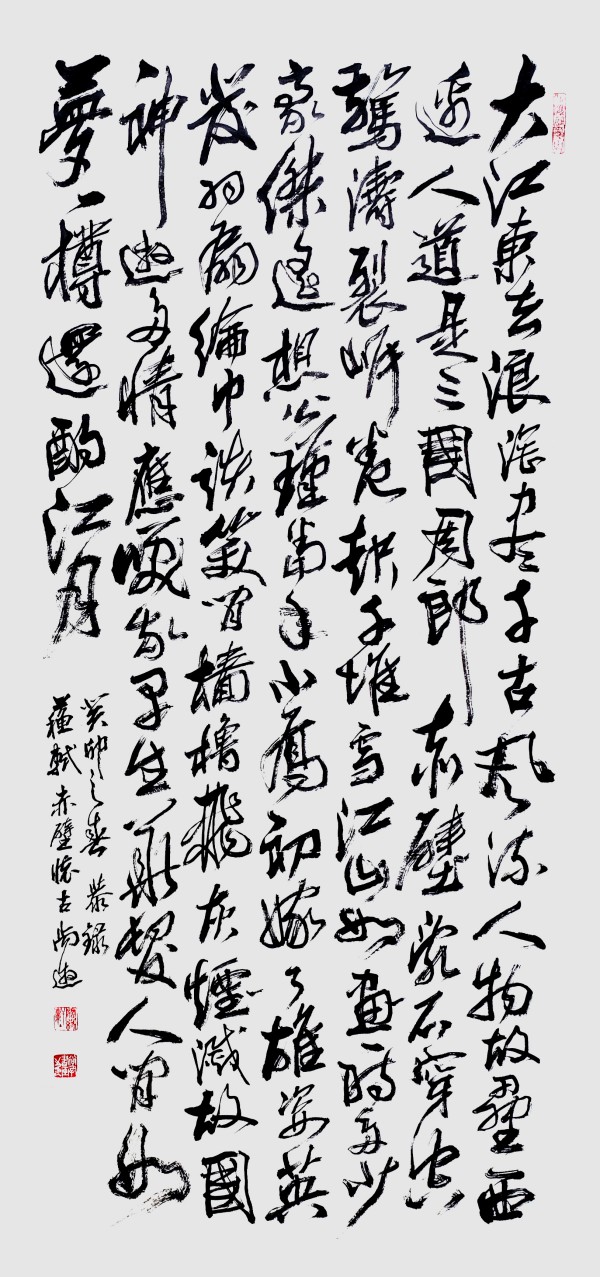 大江東去浪淘盡千古風流人物故壘西
邊人道是三國周郎赤壁亂石穿空
驚濤裂岸卷起千堆雪江山如畫時多少
豪傑遙想公瑾當年小喬初嫁了雄姿英
發羽扇綸巾談笑間檣櫓飛灰煙滅故國
神遊多情應笑我早生華髮人間如
夢一樽還酹江月
癸卯之春恭錄
蘇軾赤壁懷古尚遊